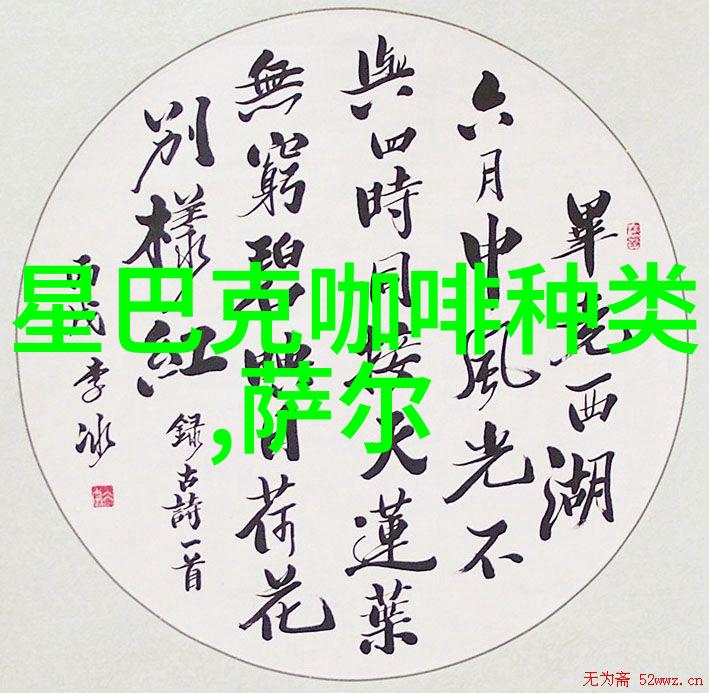 畢竟西湖
六月中風光不
與四時同接天蓮葉
無窮碧日荷花
別樣紅
錄古詩一首
丙戌李冰
星巴克咖啡种类
,萨尔
无为斋 52wwz.cn